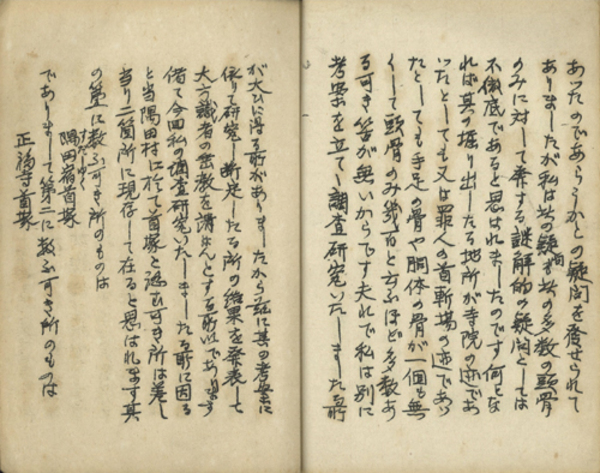 あつたのであらうかとの疑問を発せられて
ありましたが私は此の疑問も此の多数の頭骨
のみに対して発する謎解的の疑問としては
不徹底であると思はれましたのです何とな
れば其の掘り出したる地所が寺院の迹であ
つたとしても又は罪人の首斬場の迹であつ
たとしても手足の骨や胴体の骨が一個も無
くして頭骨のみ幾百と云ふほど多数あ
る可き筈が無いからです夫れで私は別に
考案を立て調査研究いたしました所
が大ひに得る所がありましたから茲に其の考案に
依りて研究し断定したる所の結果を発表して
大方識者の垂教を請はんとする所以であります
偖て今回私の調査研究いたしましたる所に因る
と当隅田村に於て首塚と認む可き所は差し
当り二箇所に現存して在ると思はれます其
の第一に数ふ可き所のものは
隅田宿首塚
でありまして第二に数ふ可き所のものは
正福寺首塚